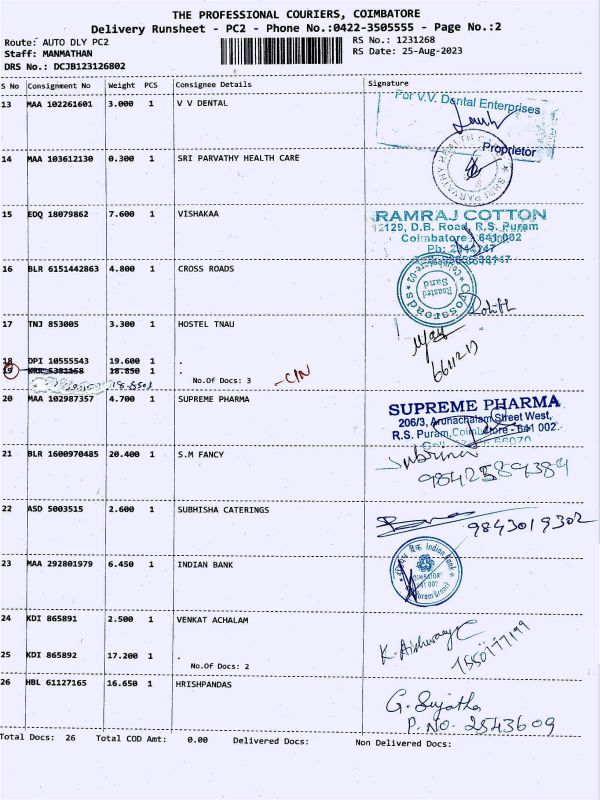 THE PROFESSIONAL COURIERS, COIMBATORE
Delivery Runsheet - PC2 - Phone No.:0422-3505555 - Page No.:2
Route: AUTO DLY PC2 RS No.: 1231268
Staff: MANMATHAN RS Date: 25-Aug-2023
DRS No.: DCJB123126802
S No Consignment No Weight PCS Consignee Details Signature
13 MAA 102261601 3.000 1 V V DENTAL
For V.V. Dental Enterprises
Proprietor
14 MAA 103612130 0.300 1 SRI PARVATHY HEALTH CARE
15 EDQ 18079862 7.600 1 VISHAKAA
RAMRAJ COTTON
12129, D.B. Road, R.S. Puram
Coimbatore - 641 002
16 BLR 6151442863 4.800 1 CROSS ROADS
Crossroads
Roasted
Sand
17 TNJ 853005 3.300 1 HOSTEL TNAU
18 DPI 10555543 19.600 1 .
19 5381158 18.850 1 .
No.Of Docs: 3
20 MAA 102987357 4.700 1 SUPREME PHARMA
SUPREME PHARMA
206/3, Arunachalam Street West,
R.S. Puram, Coimbatore - 641 002.
21 BLR 1600970485 20.400 1 S.M FANCY
Subrina
9842589389
22 ASD 5003515 2.600 1 SUBHISHA CATERINGS
9843019302
23 MAA 292801979 6.450 1 INDIAN BANK
Indian Bank
24 KDI 865891 2.500 1 VENKAT ACHALAM
K. Aishwarya
25 KDI 865892 17.200 1 .
No.Of Docs: 2
26 HBL 61127165 16.650 1 HRISHPANDAS
G. Sujatha
P.NO. 2543609
Total Docs: 26 Total COD Amt: 0.00 Delivered Docs: Non Delivered Docs: